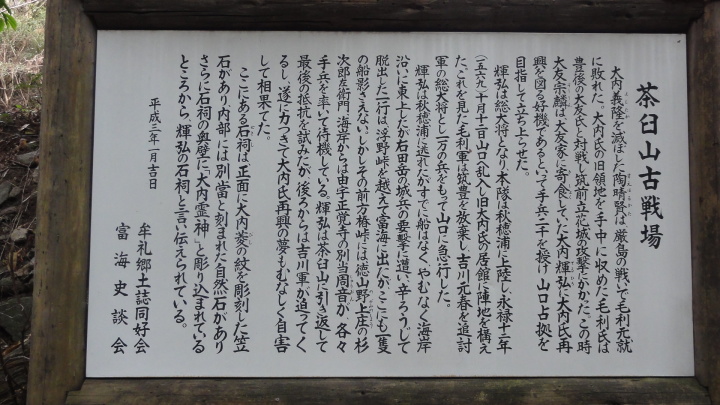 茶臼山古戦場
大内義隆を滅ぼした陶晴賢は、厳島の戦いで毛利元就
に敗れた。大内氏の旧領地を手中に収めた毛利氏は
豊後の大友氏と対戦し筑前立花城の攻撃にかかった。この時
大友宗麟は、大友家に寄食していた大内輝弘に大内氏再
興を図る好機であるといって手兵二千を授け山口占拠を
目指して立ち上らせた。
輝弘は総大将となり本隊は秋穂浦に上陸し、永禄十二年
(一五六九)十月十二日山口へ乱入し旧大内氏の居館に陣地を構え
た。これを見た毛利軍は筑豊を放棄し、吉川元春を追討
軍の総大将とし一万の兵をもって山口に急行した。
輝弘は秋穂浦に逃れたがすでに船はなく、やむなく海岸
沿いに東上したが右田岳の城兵の要撃に遭い、辛ろうじて
脱出した一行は、浮野峠を越えて富海に出たが、ここにも一隻
の船影さえない。しかしその前方椿峠には徳山野上庄の杉
次郎左衛門、海岸からは由宇正覚寺の別当周音が、各々
手兵を率いて待機している。輝弘は茶臼山に引き返して
最後の抵抗を試みたが、後ろからは吉川軍が迫ってく
るし、遂に力つきて大内氏再興の夢もむなしく自害
して相果てた。
ここにある石祠は、正面に大内菱の紋を彫刻した笠
石があり、内部には別當と刻まれた自然石があり
さらに石祠の奥壁に「大内霊神」と彫り込まれている
ところから、輝弘の石祠と言い伝えられている。
平成三年一月吉日
牟礼郷土誌同好会
富海史談会